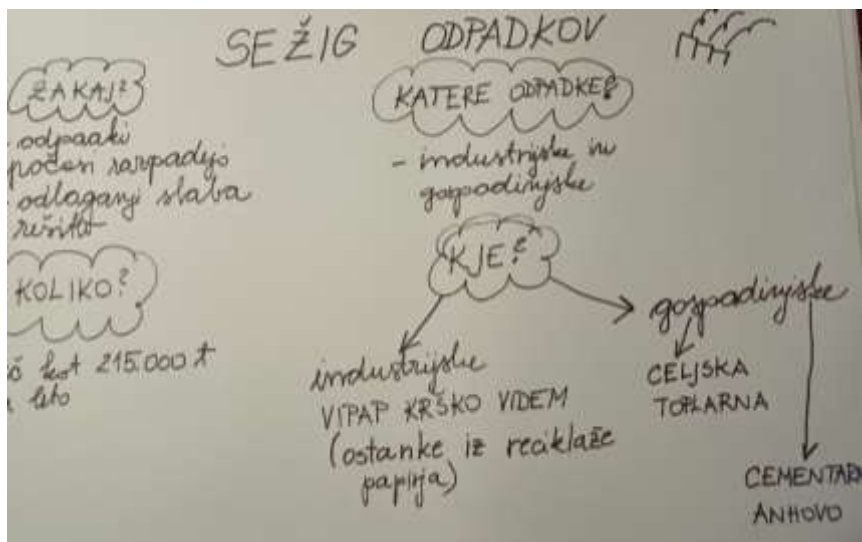 SEŽIG ODPADKOV
ZAKAJ?
- odpadki
počasi razpadejo
- odlaganje slaba
rešitev
KOLIKO?
č kot 215.000 t
leto
KATERE ODPADKE?
- industrijske in
gospodinjske
KJE?
industrijske
VIPAP KRŠKO VIDEM
(ostanke iz reciklaže
papirja)
gospodinjske
CELJSKA
TOPLARNA
CEMENTARN
ANHOVO